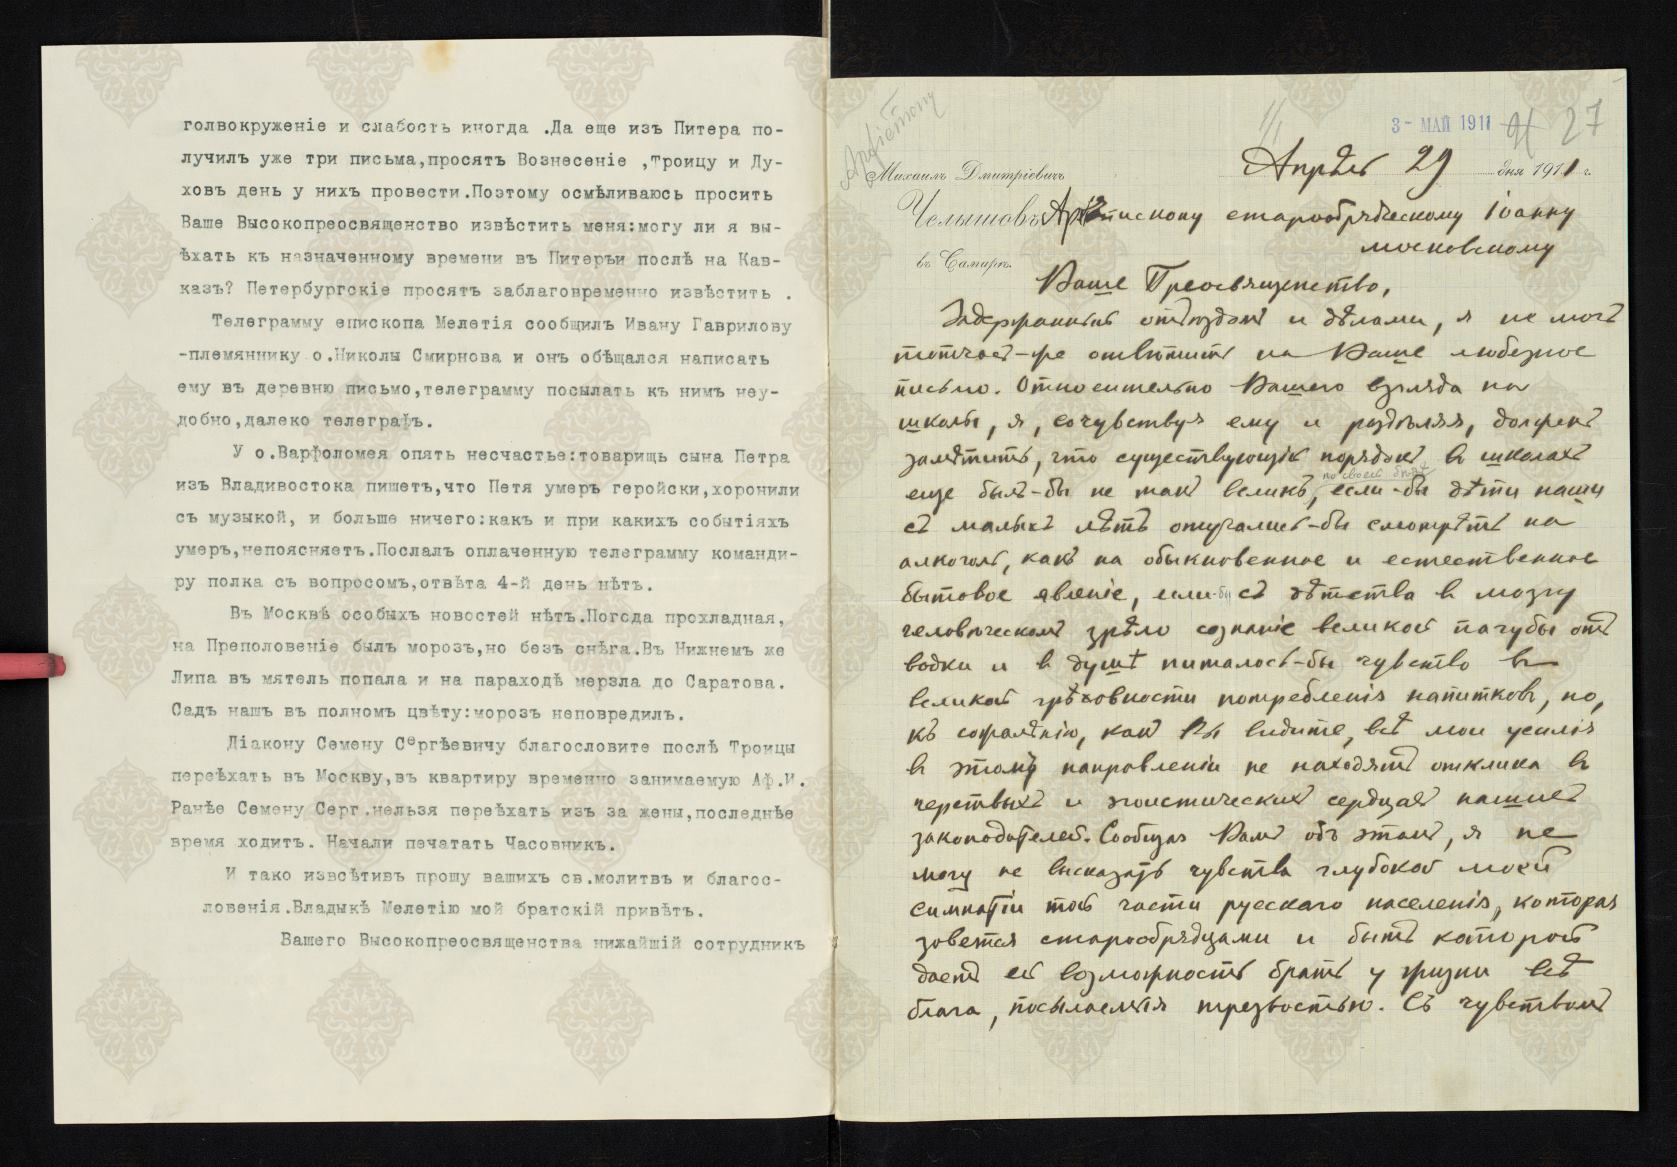 голвокруженіе и слабость иногда .Да еще изъ Питера по-
лучилъ уже три письма,просятъ Вознесеніе ,Троицу и Ду-
ховъ день у нихъ провести.Поэтому осмѣливаюсь просить
Ваше Высокопреосвященство извѣстить меня:могу ли я вы-
ѣхать къ назначенному времени въ Питеръи послѣ на Кав-
казъ? Петербургскіе просятъ заблаговременно извѣстить .
Телеграмму епископа Мелетія сообщилъ Ивану Гаврилову
-племяннику о.Николы Смирнова и онъ обѣщался написать
ему въ деревню письмо,телеграмму посылать къ нимъ неу-
добно,далеко телеграфъ.
У о.Варфоломея опять несчастье:товарищь сына Петра
изъ Владивостока пишетъ,что Петя умеръ геройски,хоронили
съ музыкой, и больше ничего:какъ и при какихъ событіяхъ
умеръ,непоясняетъ.Послалъ оплаченную телеграмму команди-
ру полка съ вопросомъ,отвѣта 4-й день нѣтъ.
Въ Москвѣ особыхъ новостей нѣтъ.Погода прохладная,
на Преполовеніе былъ морозъ,но безъ снѣга.Въ Нижнемъ же
Липа въ мятель попала и на параходѣ мерзла до Саратова.
Садъ нашъ въ полномъ цвѣту:морозъ неповредилъ.
Діакону Семену Сергѣевичу благословите послѣ Троицы
переѣхать въ Москву,въ квартиру временно занимаемую Аф.И.
Ранѣе Семену Серг.нельзя переѣхать изъ за жены,последнѣе
время ходитъ. Начали печатать Часовникъ.
И тако извсѣтивъ прошу вашихъ св.молитвъ и благос-
ловенія.Владыкѣ Мелетію мой братскій привѣтъ.
Вашего Высокопреосвященства нижайшій сотрудникъ
3- МАЙ 1911 27
Михаилъ Дмитріевичъ
Апрѣль 29 дня 1911 г.
Челышовъ
Архіепископу старообрядческому Іоанну
московскому
въ Самарѣ.
Ваше Преосвященство,
Задержанный отъѣздомъ и дѣлами, я не могъ
тотчасъ-же отвѣтить на Ваше любезное
письмо. Относительно Вашего взгляда на
школы, я, сочувствуя ему и раздѣляя, долженъ
замѣтить, что существующій порядокъ въ школахъ
еще былъ-бы не такъ великъ, если-бы дѣти наши
съ малыхъ лѣтъ отучались-бы смотрѣть на
алкоголь, какъ на обыкновенное и естественное
бытовое явленіе, если-бы съ дѣтства въ мозгу
человѣческомъ зрѣло сознаніе великой пагубы отъ
водки и въ душѣ питалось-бы чувство
великой грѣховности потребленія напитковъ, но,
къ сожалѣнію, какъ Вы видите, всѣ мои усилія
въ этомъ направленіи не находятъ отклика въ
черствыхъ и эгоистическихъ сердцахъ нашихъ
законодателей. Сообщая Вамъ объ этомъ, я не
могу не высказать чувства глубокой моей
симпатіи той части русскаго населенія, которая
зовется старообрядцами и бытъ которой
даетъ ей возможность брать у жизни всѣ
блага, посылаемыя трезвостью. Съ чувствомъ